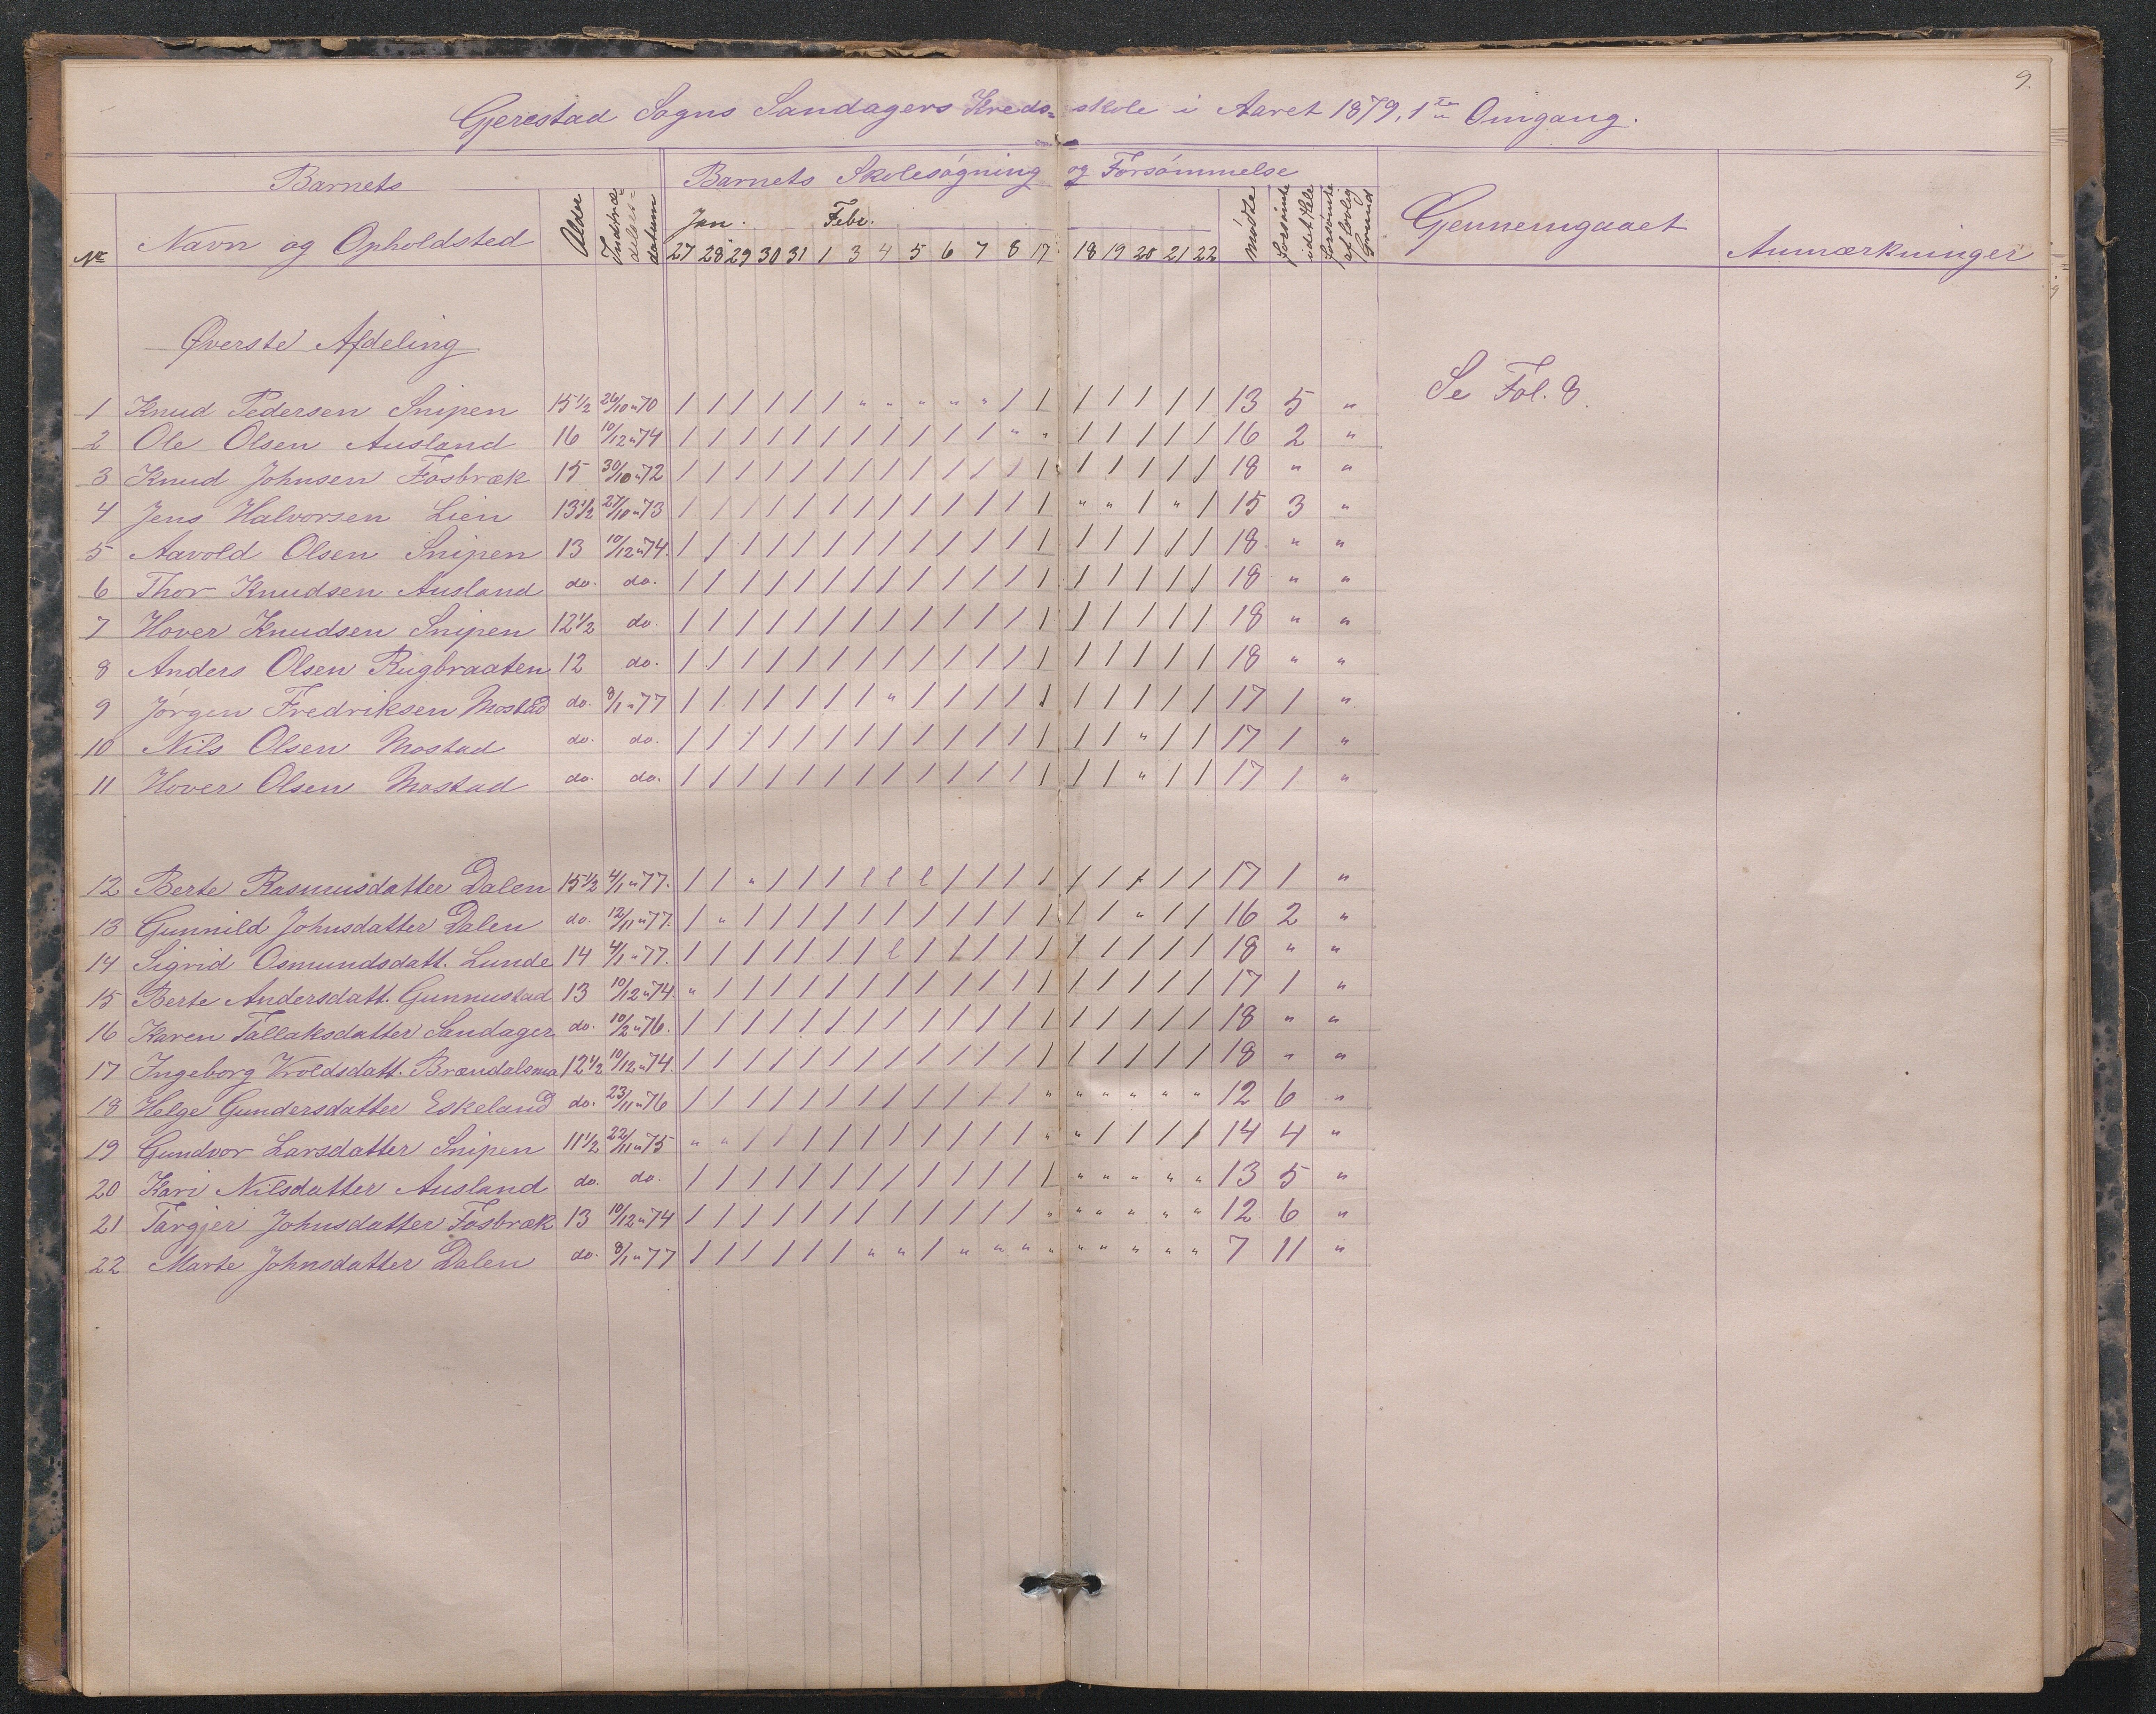 9.
Gjerestad Sogns Sandagers Kreds=skole i Aaret 1879, 1ste Omgang.
Barnets | Barnets Skolesøgning og Forsømmelse
No | Navn og Opholdsted | Alder | Indtræ-delses-datum | Jan. Febr. | Mødte | Forsømte i det Hele | Forsømte af lovlig Grund | Gjennemgaaet | Anmærkninger
27 28 29 30 31 1 3 4 5 6 7 8 17 18 19 20 21 22
Øverste Afdeling
Se Fol. 8.
1 Knud Pedersen Snipen 15 1/2 26/10 " 70 / / / / / / " " " " " / / / / / / / 13 5 "
2 Ole Olsen Ausland 16 10/12 " 74 / / / / / / / / / / / " " / / / / / 16 2 "
3 Knud Johnsen Fosbræk 15 30/10 " 72 / / / / / / / / / / / / / / / / / / 18 " "
4 Jens Halvorsen Lien 13 1/2 27/10 " 73 / / / / / / / / / / / / / " " / " / 15 3 "
5 Aavold Olsen Snipen 13 10/12 " 74. / / / / / / / / / / / / / / / / / / 18 " "
6 Thor Knudsen Ausland do. do. / / / / / / / / / / / / / / / / / / 18 " "
7 Hover Knudsen Snipen 12 1/2 do. / / / / / / / / / / / / / / / / / / 18 " "
8 Anders Olsen Rugbraaten 12 do. / / / / / / / / / / / / / / / / / / 18 " "
9 Jørgen Fredriksen Mostad do. 8/1 " 77 / / / / / / / " / / / / / / / / / / 17 1 "
10 Nils Olsen Mostad do. do. / / / / / / / / / / / / / / / " / / 17 1 "
11 Hover Olsen Mostad do. do. / / / / / / / / / / / / / / / " / / 17 1 "
12 Berte Rasmusdatter Dalen 15 1/2 4/1 " 77. / / " / / / l l l / / / / / / / / / 17 1 "
13 Gunnild Johnsdatter Dalen do. 12/11 " 77. / " / / / / / / / / / / / / / " / / 16 2 "
14 Sigrid Osmundsdatt. Lunde 14 4/1 " 77. / / / / / / / l / / / / / / / / / / 18 " "
15 Berte Andersdatt. Gunnustad 13 10/12 " 74. " / / / / / / / / / / / / / / / / / 17 1 "
16 Karen Tallaksdatter Sandager do. 10/2 " 76. / / / / / / / / / / / / / / / / / / 18 " "
17 Ingeborg Vroldsdatt. Brændalsmo 12 1/2 10/12 " 74. / / / / / / / / / / / / / / / / / / 18 " "
18 Helge Gundersdatter Eskeland do. 23/11 " 76 / / / / / / / / / / / / " " " " " " 12 6 "
19 Gundvor Larsdatter Snipen 11 1/2 22/11 " 75 " " / / / / / / / / / / " " / / / / 14 4 "
20 Kari Nilsdatter Ausland do. do. / / / / / / / / / / / / / " " " " " 13 5 "
21 Targjer Johnsdatter Fosbræk 13 10/12 " 74 / / / / / / / / / / / / " " " " " " 12 6 "
22 Marte Johnsdatter Dalen do. 8/1 " 77 / / / / / / " " / " " " " " " " " " 7 11 "